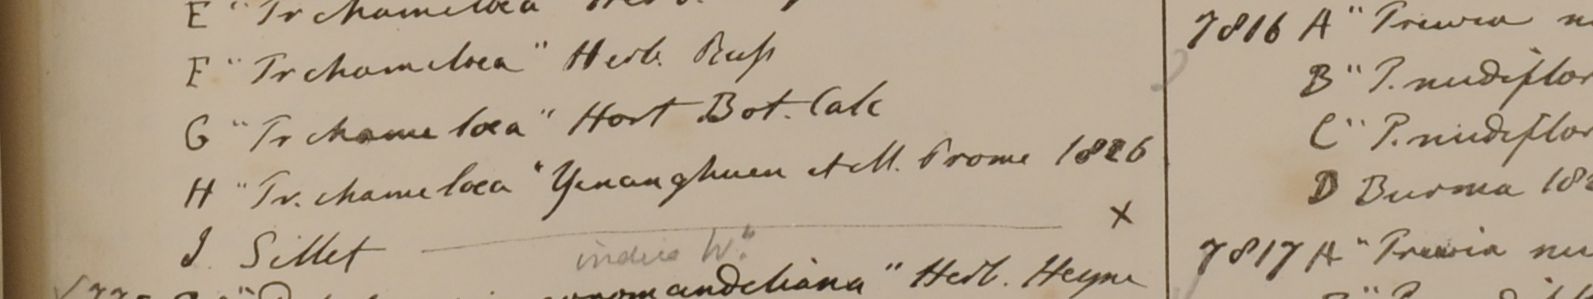 E "Tr chameloea"
F "Tr chameloea" Herb. Russ
G "Tr chameloea" Hort Bot. Calc
H "Tr. chameloea" Yenanghuen et M. Prome 1826
I. Sillet x
indica W."
coromandeliana" Herb. Heyne
7816 A "Trewia n
B "T. nudiflor
C "T. nudiflor
D Burma 18
7817 A "Trewia nu